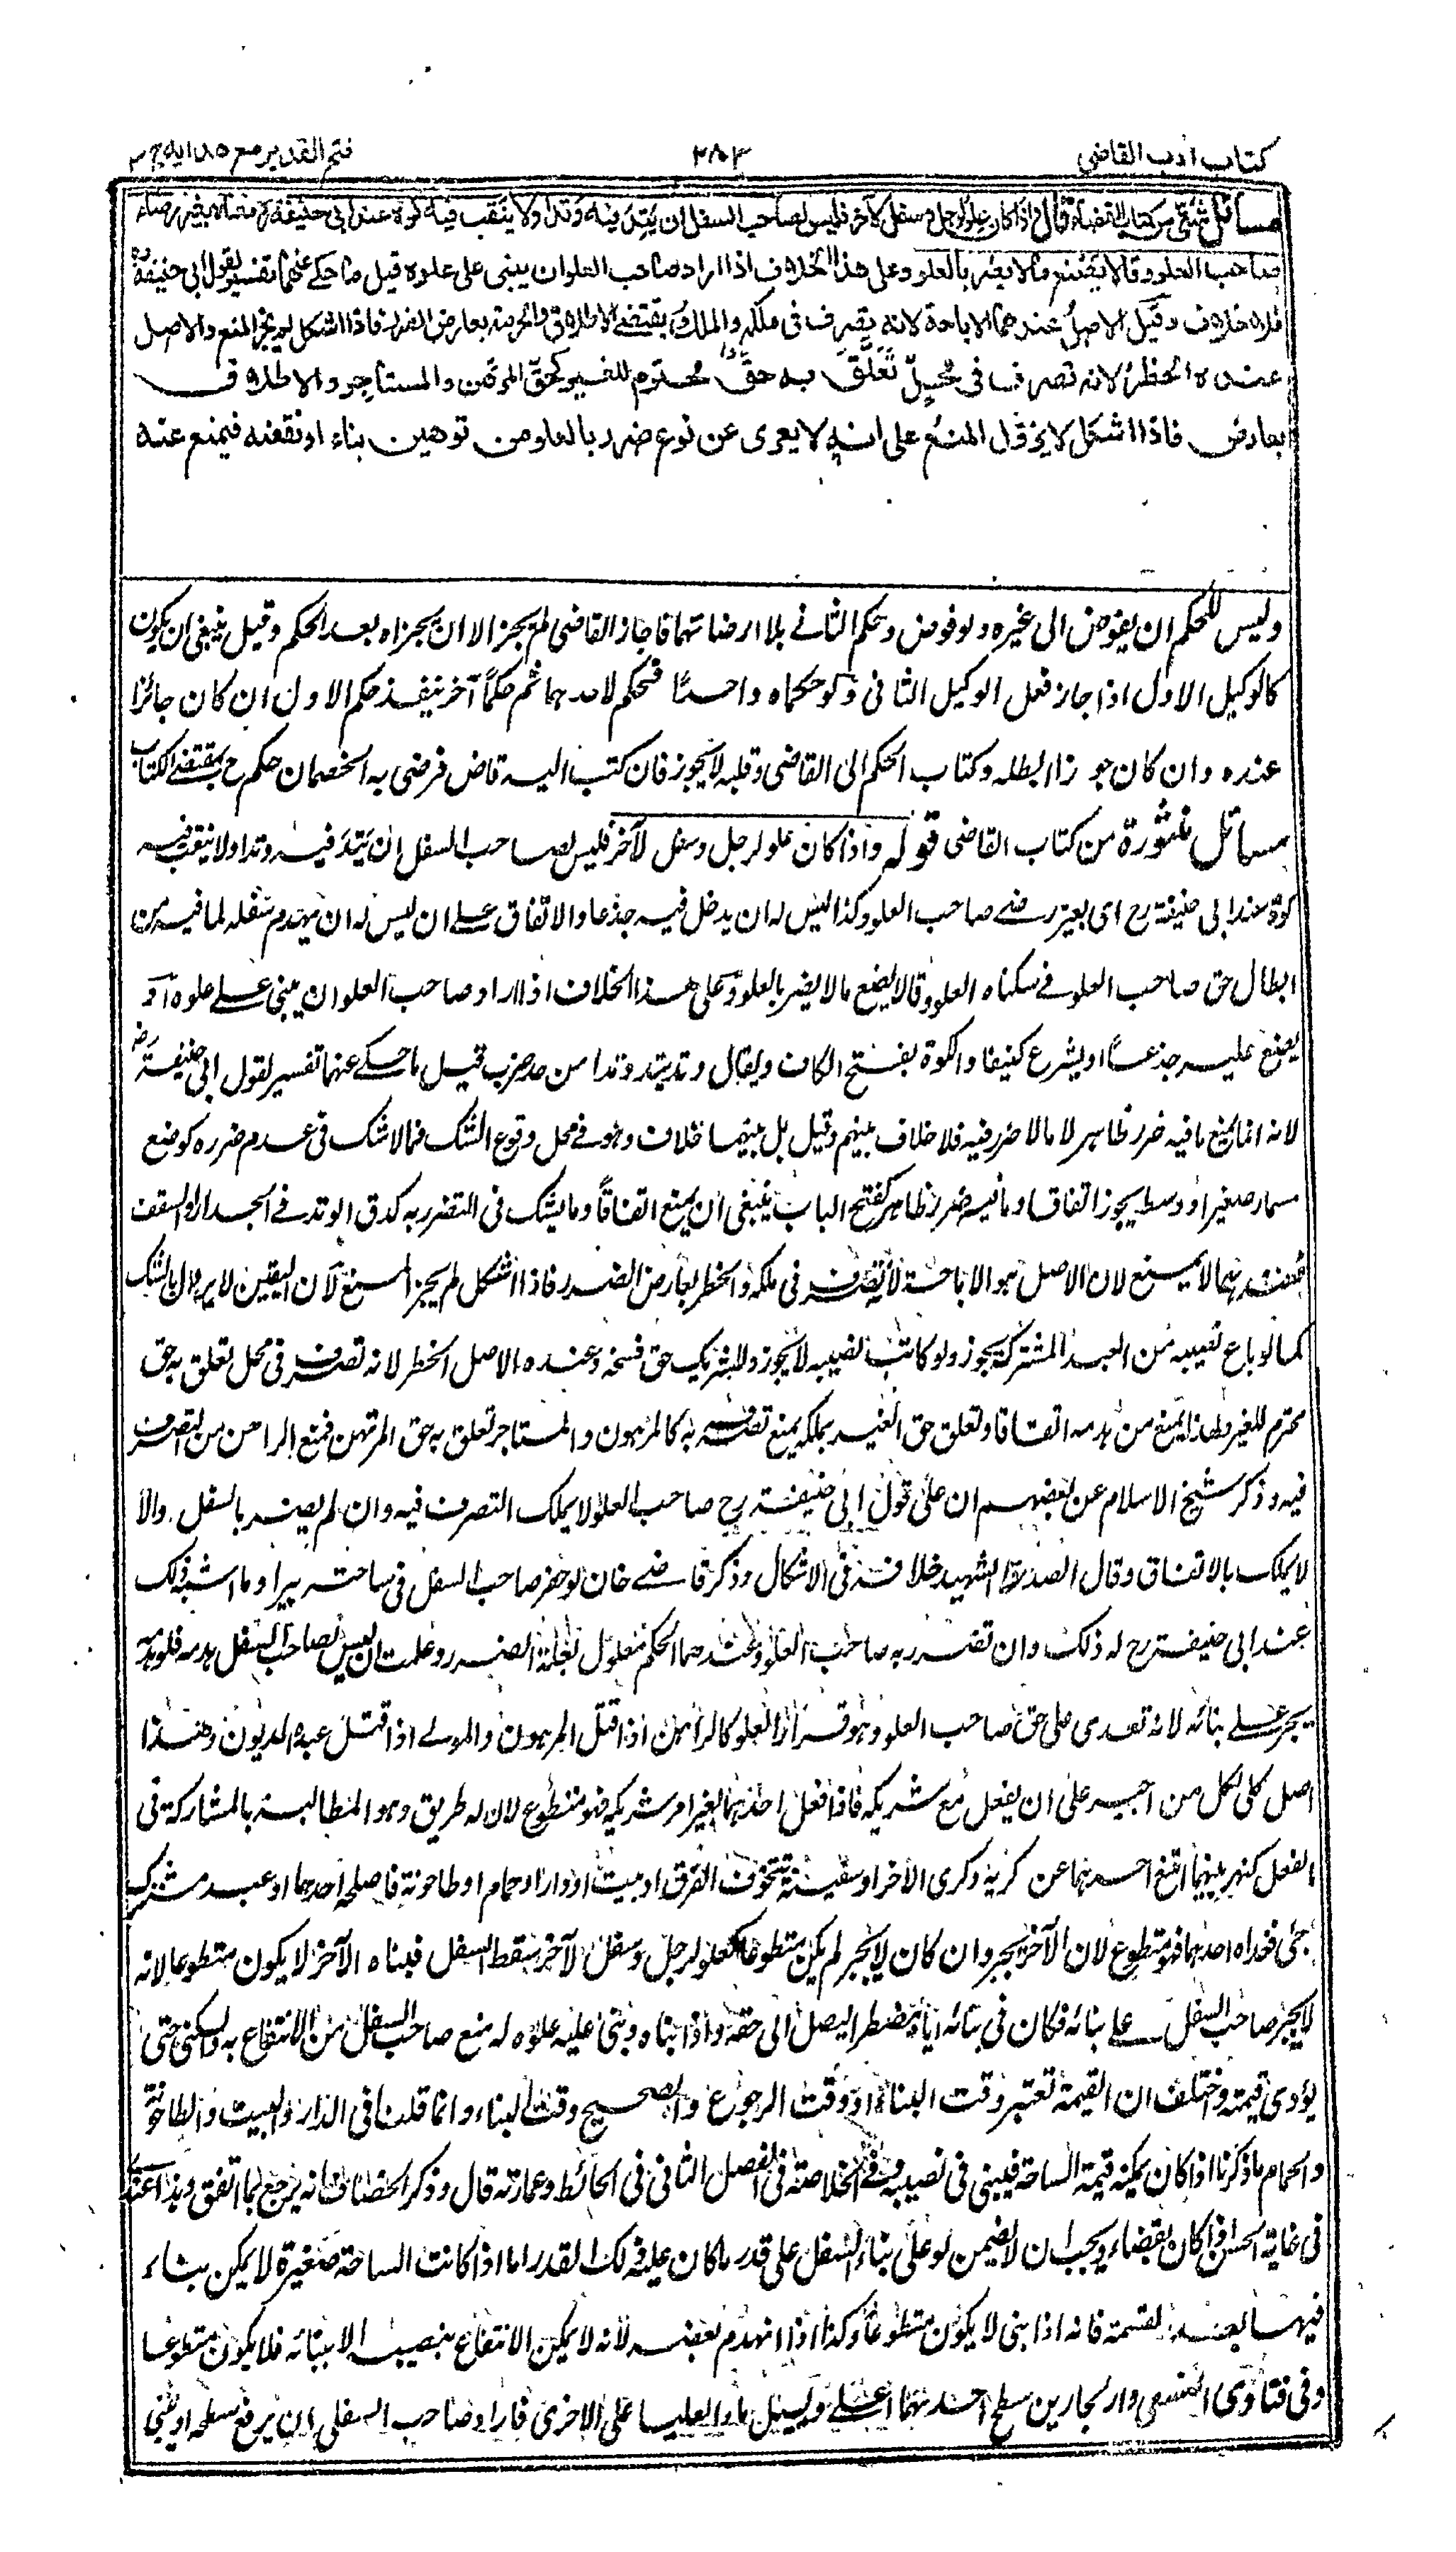 كتاب ادب القاضى
٣٨٣
فتح القدير مع هدايه ج ٣
مسائل شتى من كتاب القضاء قال واذا كان علو لرجل وسفل لآخر فليس لصاحب السفل ان يتد فيه وتدا ولا ينقب فيه كوة عند ابى حنيفة رح معناه بغير رضاء
صاحب العلو وقالا يصنع ما لا يضر بالعلو وعلى هذا الخلاف اذا اراد صاحب العلو ان يبنى على علوه قيل ما حكى عنهما تفسير لقول ابى حنيفة رح
فلا خلاف وقيل الاصل عندهما الاباحة لانه تصرف فى ملكه والملك يقتضى الاطلاق والحرمة بعارض الضرر فاذا اشكل لم يجز المنع والاصل
عنده الحظر لانه تصرف فى محل تعلق به حق محترم للغير كحق المرتهن والمستاجر والاطلاق
بعارض فاذا اشكل لا يزول المنع على انه لا يعرى عن نوع ضرر بالعلو من توهين بناء او نقضه فيمنع عنه
وليس للمحكم ان يفوض الى غيره ولو فوض وحكم الثانى بلا رضاهما فاجاز القاضى لم يجز الا ان يجيزاه بعد الحكم وقيل ينبغى ان يكون
كالوكيل الاول اذا جاز فعل الوكيل الثانى ولو حكماه واحدا فحكم لاحدهما ثم حكما آخر ينفذ حكم الاول ان كان جائزا
عنده وان كان جورا ابطله وكتاب الحكم الى القاضى وقلبه لا يجوز فان كتب اليه قاض فرضى به الخصمان حكم ح بمقتضى الكتاب
مسائل منثورة من كتاب القاضى قوله واذا كان علو لرجل وسفل لآخر فليس لصاحب السفل ان يتد فيه وتدا ولا ينقب فيه
كوة عند ابى حنيفة رح اى بغير رضى صاحب العلو وكذا ليس له ان يدخل فيه جذعا والاتفاق على ان ليس له ان يهدم سفله لما فيه من
ابطال حق صاحب العلو فى سكناه العلو وقالا يصنع ما لا يضر بالعلو وعلى هذا الخلاف اذا اراد صاحب العلو ان يبنى على علوه او
يضع عليه جذعا او يشرع كنيفا والكوة بفتح الكاف ويقال وتد يتد وتدا من حد ضرب قيل ما حكى عنهما تفسير لقول ابى حنيفة رض
لانه انما يمنع ما فيه ضرر ظاهر لا ما لا ضرر فيه فلا خلاف بينهم وقيل بل بينهما خلاف وهو فى محل وقوع الشك فما لا شك فى عدم ضرره كوضع
مسمار صغير او وسط يجوز اتفاقا وما فيه ضرر ظاهر كفتح الباب ينبغى ان يمنع اتفاقا وما يشك فى التضرر به كدق الوتد فى الجدار او السقف
فعندهما لا يمنع لان الاصل هو الاباحة لانه تصرف فى ملكه والحظر بعارض الضرر فاذا اشكل لم يجز المنع لان اليقين لا يزول بالشك
كما لو باع نصيبه من العبد المشترك يجوز ولو كاتب نصيبه لا يجوز وللشريك حق فسخه وعنده الاصل الحظر لانه تصرف فى محل تعلق به حق
محترم للغير ولهذا يمنع من هدمه اتفاقا وتعلق حق الغير بملكه يمنع تصرفه به كالمرهون والمستاجر تعلق به حق المرتهن فمنع الراهن من التصرف
فيه وذكر شيخ الاسلام عن بعضهم ان على قول ابى حنيفة رح صاحب العلو لا يملك التصرف فيه وان لم يضر بالسفل والا
لا يملك بالاتفاق وقال الصدر الشهيد خلافه فى الاشكال وذكر قاضى خان لو حفر صاحب السفل فى ساحته بيرا وما اشبه ذلك
عند ابى حنيفة رح له ذلك وان تضرر به صاحب العلو وعندهما الحكم معلول بعلة الضرر وعلمت ان ليس لصاحب السفل هدمه فلو هدمه
يجبر على بنائه لانه تعدى على حق صاحب العلو وهو قرار العلو كالراهن اذا قتل المرهون والمولى اذا قتل عبده المديون وهذا
اصل كلى لكل من اجبر على ان يفعل مع شريكه فاذا فعل احدهما بغير امر شريكه فهو متطوع لان له طريق وهو المطالبة بالمشاركة فى
الفعل كنهر بينهما امتنع احدهما عن كريه وكرى الآخر او سفينة تتخوف الغرق او بيت او دار او حمام او طاحونة فاصلحه احدهما او عبد مشترك
جنى ففداه احدهما فهو متطوع لان الآخر يجبر وان كان لا يجبر لم يكن متطوعا كعلو لرجل وسفل لآخر سقط السفل فبناه الآخر لا يكون متطوعا لانه
لا يجبر صاحب السفل على بنائه فكان فى بنائه اياه مضطرا ليصل الى حقه واذا بناه وبنى عليه علوه له منع صاحب السفل من الانتفاع به والسكنى حتى
يؤدى قيمته واختلف ان القيمة تعتبر وقت البناء او وقت الرجوع والصحيح وقت البناء وانما قلنا فى الدار والبيت والطاحونة
والحمام ما ذكرنا اذا كان يمكنه قيمة الساحة فيبنى فى نصيبه وفى الخلاصة فى الفصل الثانى فى الحائط وعمارته قال وذكر الخصاف انه يرجع بما انفق وبهذا
فى غاية الحسن اذا كان بقضاء ويجب ان لا يضمن لو على بناء السفل على قدر ما كان عليه ذلك القدر اما اذا كانت الساحة صغيرة لا يمكن بناء
فيها بعد القسمة فانه اذا بنى لا يكون متطوعا وكذا اذا انهدم بعضه لانه لا يمكن الانتفاع بنصيبه الا ببنائه فلا يكون متطوعا
وفى فتاوى النسفى دار لجارين سطح احدهما اعلى ومسيل ماء العليا على الاخرى فاراد صاحب السفلى ان يرفع سطحه او يبنى